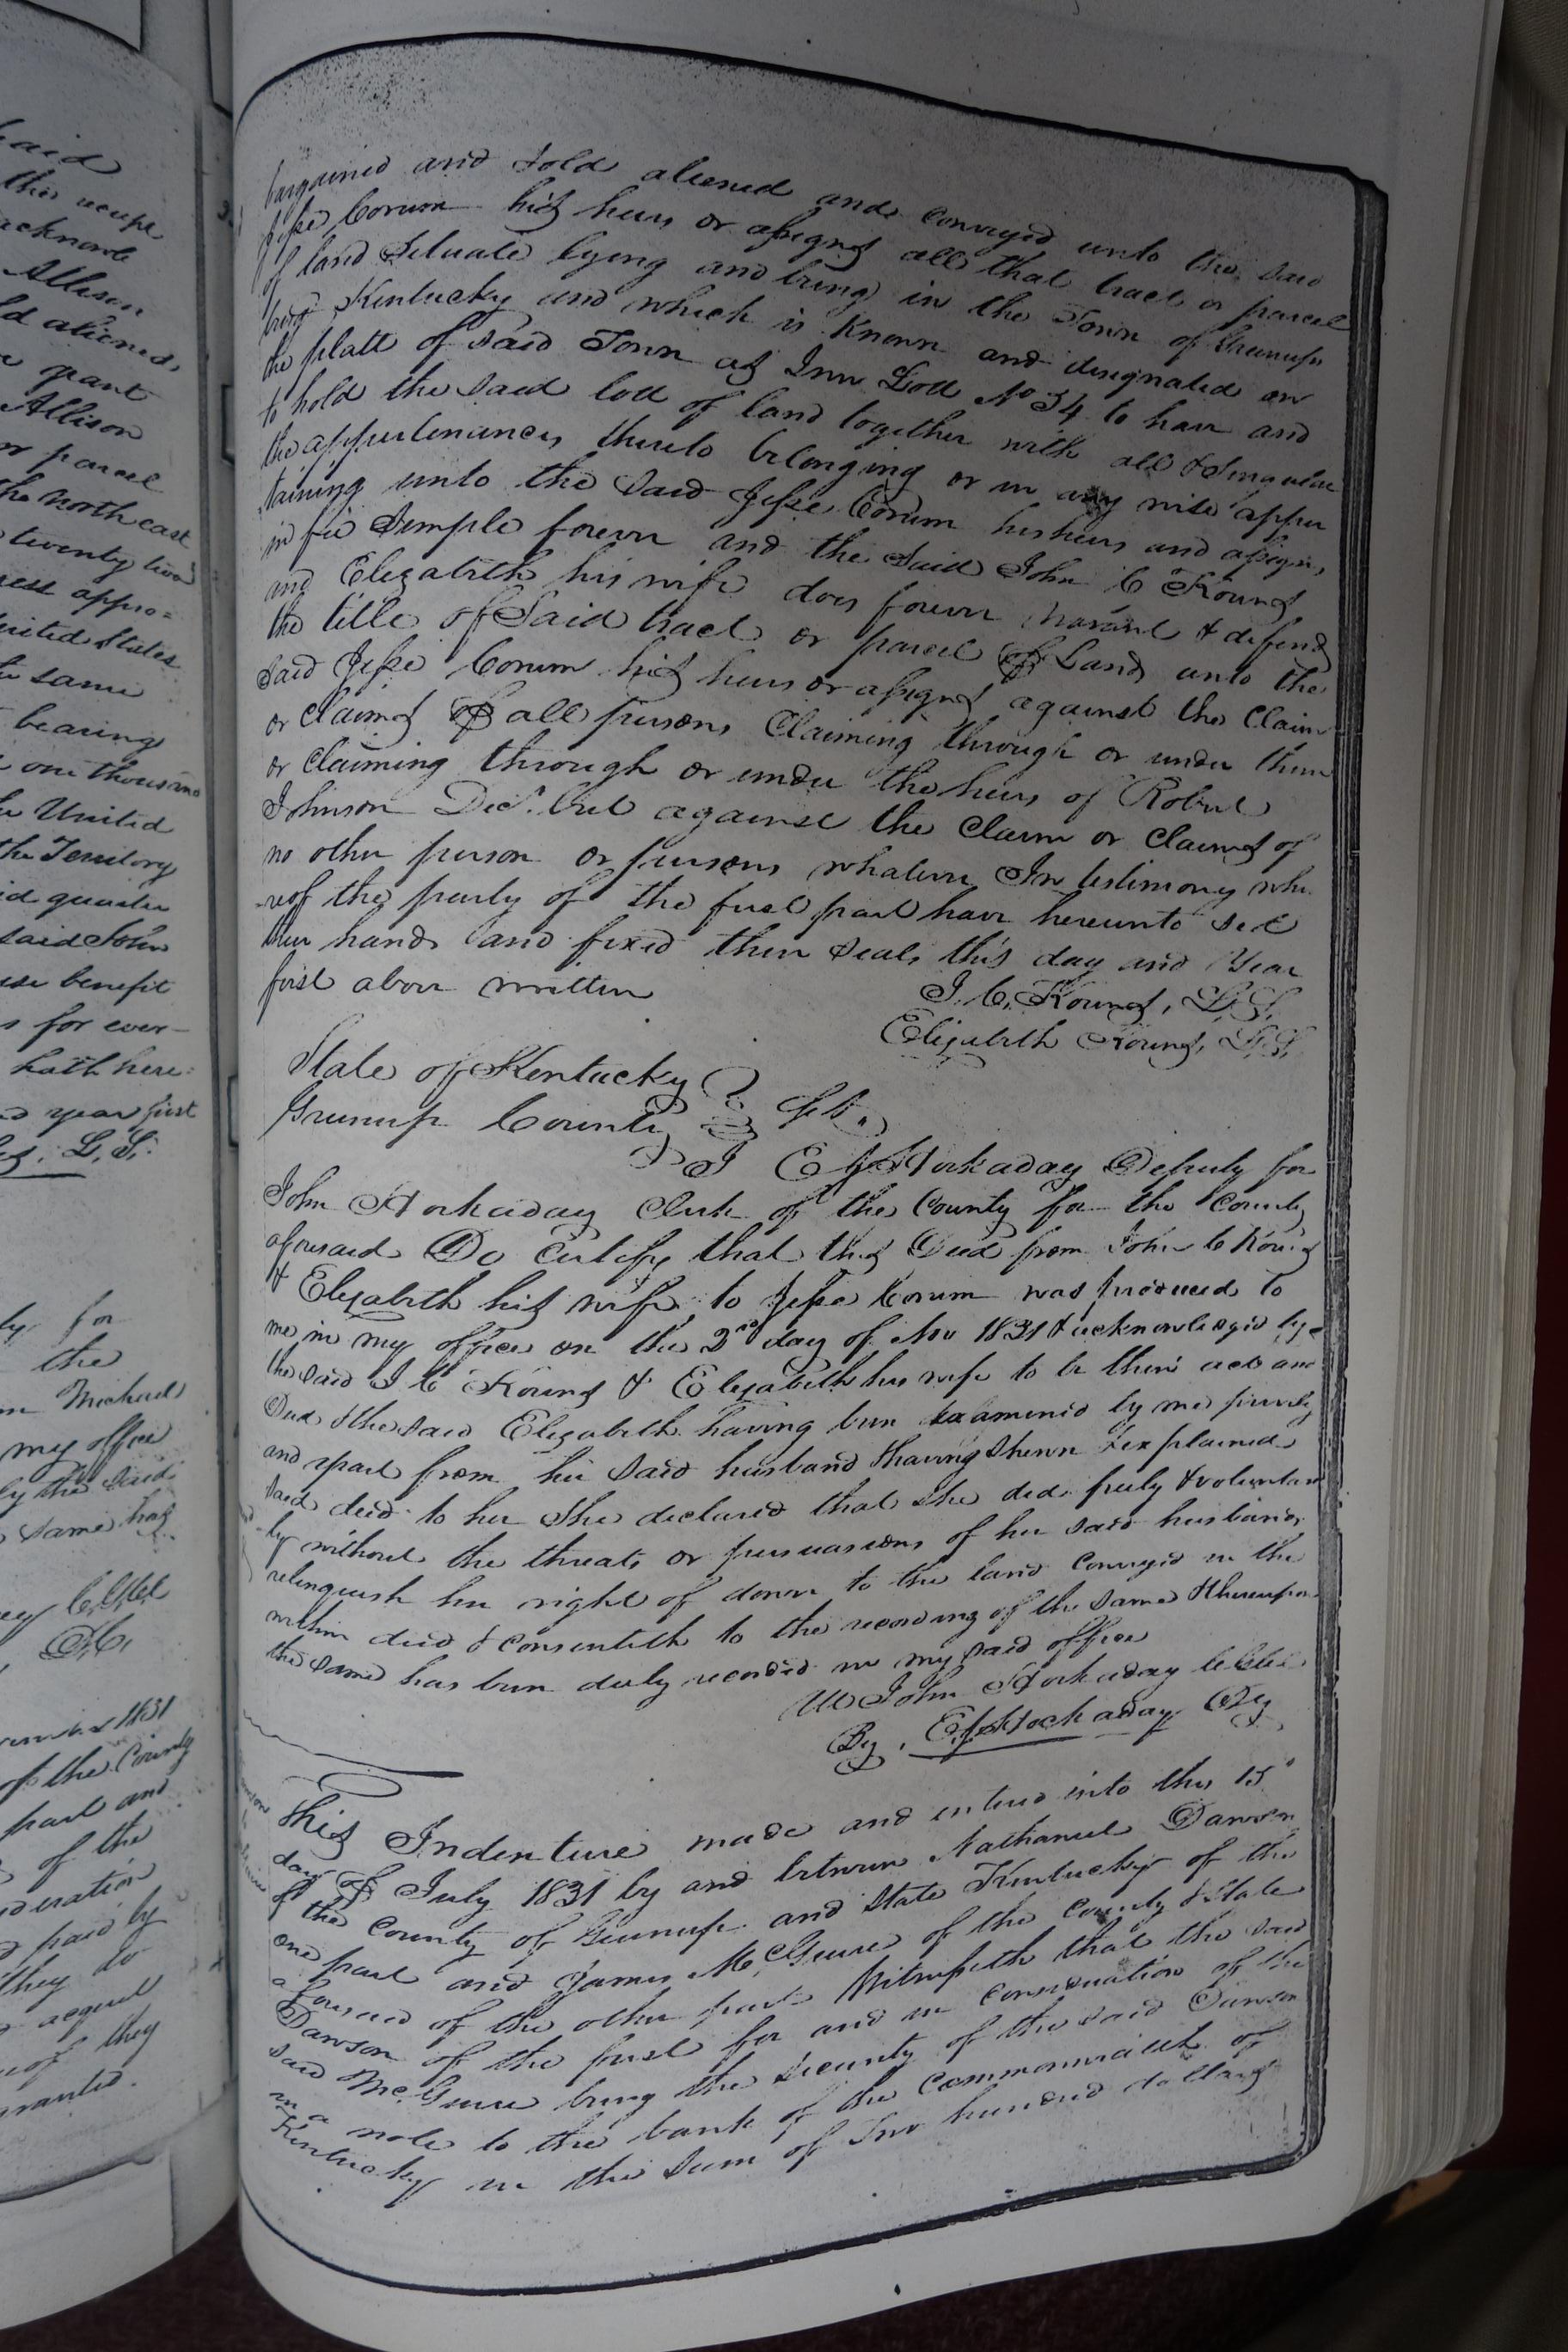 said
this recipe
acknowle
Allison
ld aliened,
grant
Allison
or parcel
the north east
twenty two
appro=
United States
same
bearing
one thousand
United
the Territory
id quarter
said John
use benefit
s for ever
hath here=
year first
L. S.
for
the
Michael
my office
by the said
same has
1831
of the County
part and
of the
ideration
paid by
they do
they
bargained and sold aliened and conveyed unto the said
Jesse Corum his heirs or assigns all that tract or parcel
of land Situate lying and being in the Town of Greenup
Kentucky and which is Known and designated on
the platt of said Town as Inn Lott No 34 to have and
to hold the said lott of land together with all & Singular
the appertenances thereto belonging or in any wise apper
taining unto the said Jesse Corum his heirs and assigns
in fee Simple forever and the said John C Kouns
and Elizabeth his wife does forever warant & defend
the title of Said tract or parcel of Land unto the
said Jesse Corum his heirs or assigns against the Claim
or claims of all persons Claiming through or under them
or claiming through or under the heirs of Robert
Johnson Decd. but against the Claim or Claims of
no other person or persons whatever In testimony whe
reof the party of the first part have hereunto set
their hands and fixed their seals this day and Year
first above written
J. C. Kouns, L.S.
Elizabeth Kouns, L.S.
State of Kentucky
Greenup County Sct.
I E J Hockaday Deputy for
John Hockaday Clerk of the County for the County
aforesaid Do Certify that this Deed from John C Kouns
& Elizabeth his wife to Jesse Corum was produced to
me in my office on the 2nd day of Nov 1831 & acknowledged by
the said J C Kouns & Elizabeth his wife to be their act and
Deed & the said Elizabeth having been examined by me privily
and apart from her said husband & having shewn & explained
said deed to her She declared that she did freely & voluntari
ly without the threats or persuasions of her said husband,
relinquish her right of dower to the land conveyed in the
within deed & consenteth to the recording of the same & thereupon
the same has been duly recorded in my said office
John Hockaday
By, E J Hockaday Dy
This Indenture made and entered into this 15
day of July 1831 by and between Nathaniel Dawson
of the County of Greenup and State Kentucky of the
one part and James McGuire of the County & State
aforesaid of the other part Witnesseth that the said
Dawson of the first for and in consideration of the
said McGuire being the security of the said Dawson
in a note to the bank of the Commonwealth of
Kentucky in the Sum of Two hundred dollars